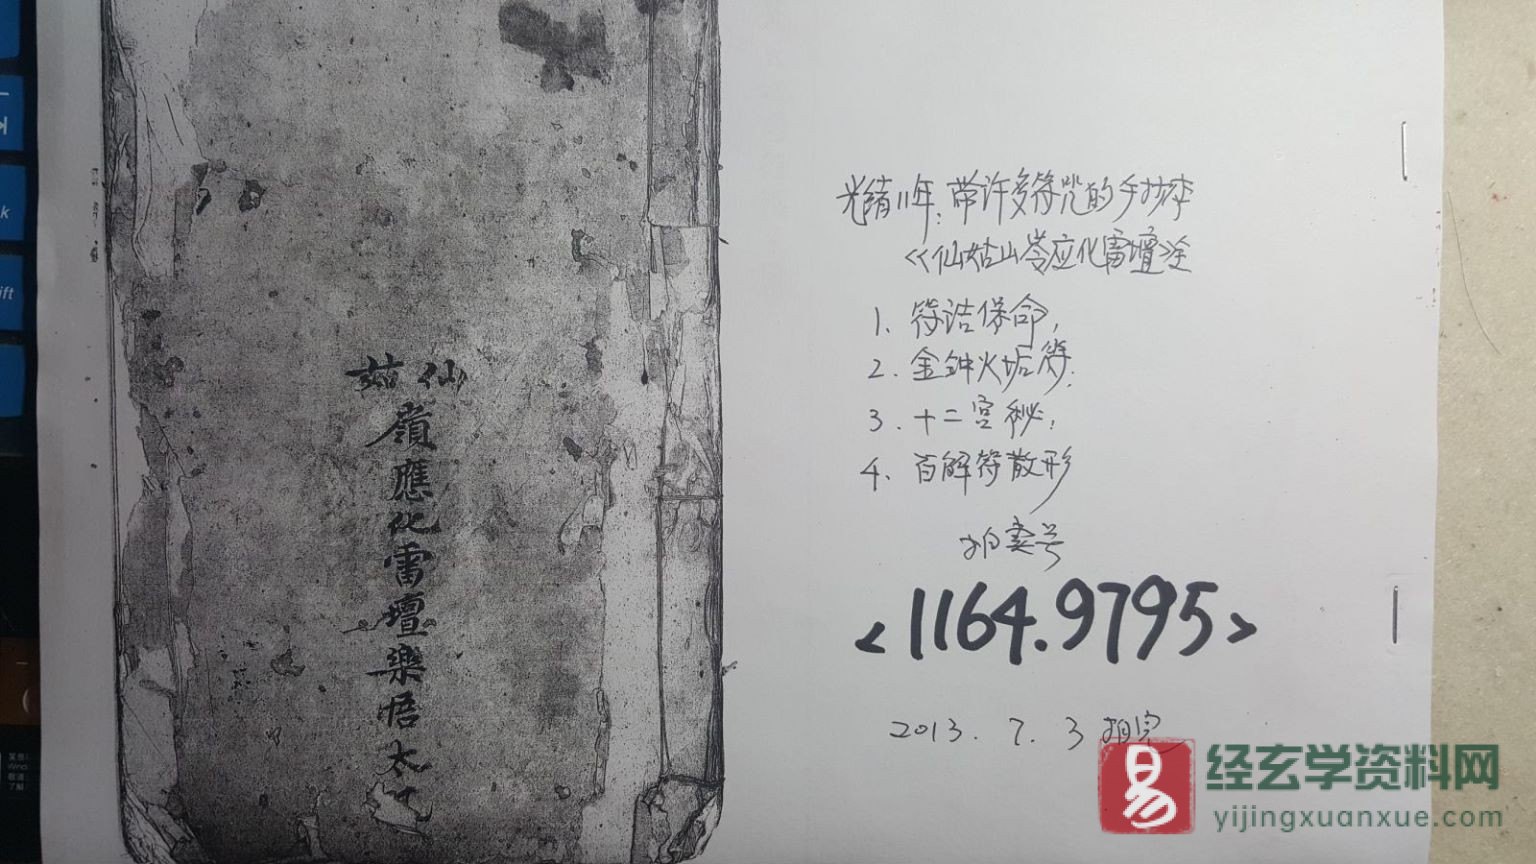 仙菇
嶺
應
化
雷
壇
樂
悟
太
光绪11年,带许多符咒的手抄本
<<仙姑山岺应化雷壇>>全
1. 符诰保命,
2. 金钟火垢符,
3. 十二宫秘;
4. 百解符散形
拍卖号
<1164.9795>
2013. 7. 3 拍完
易
经玄学资料网
yijingxuanxue.com
k
ift